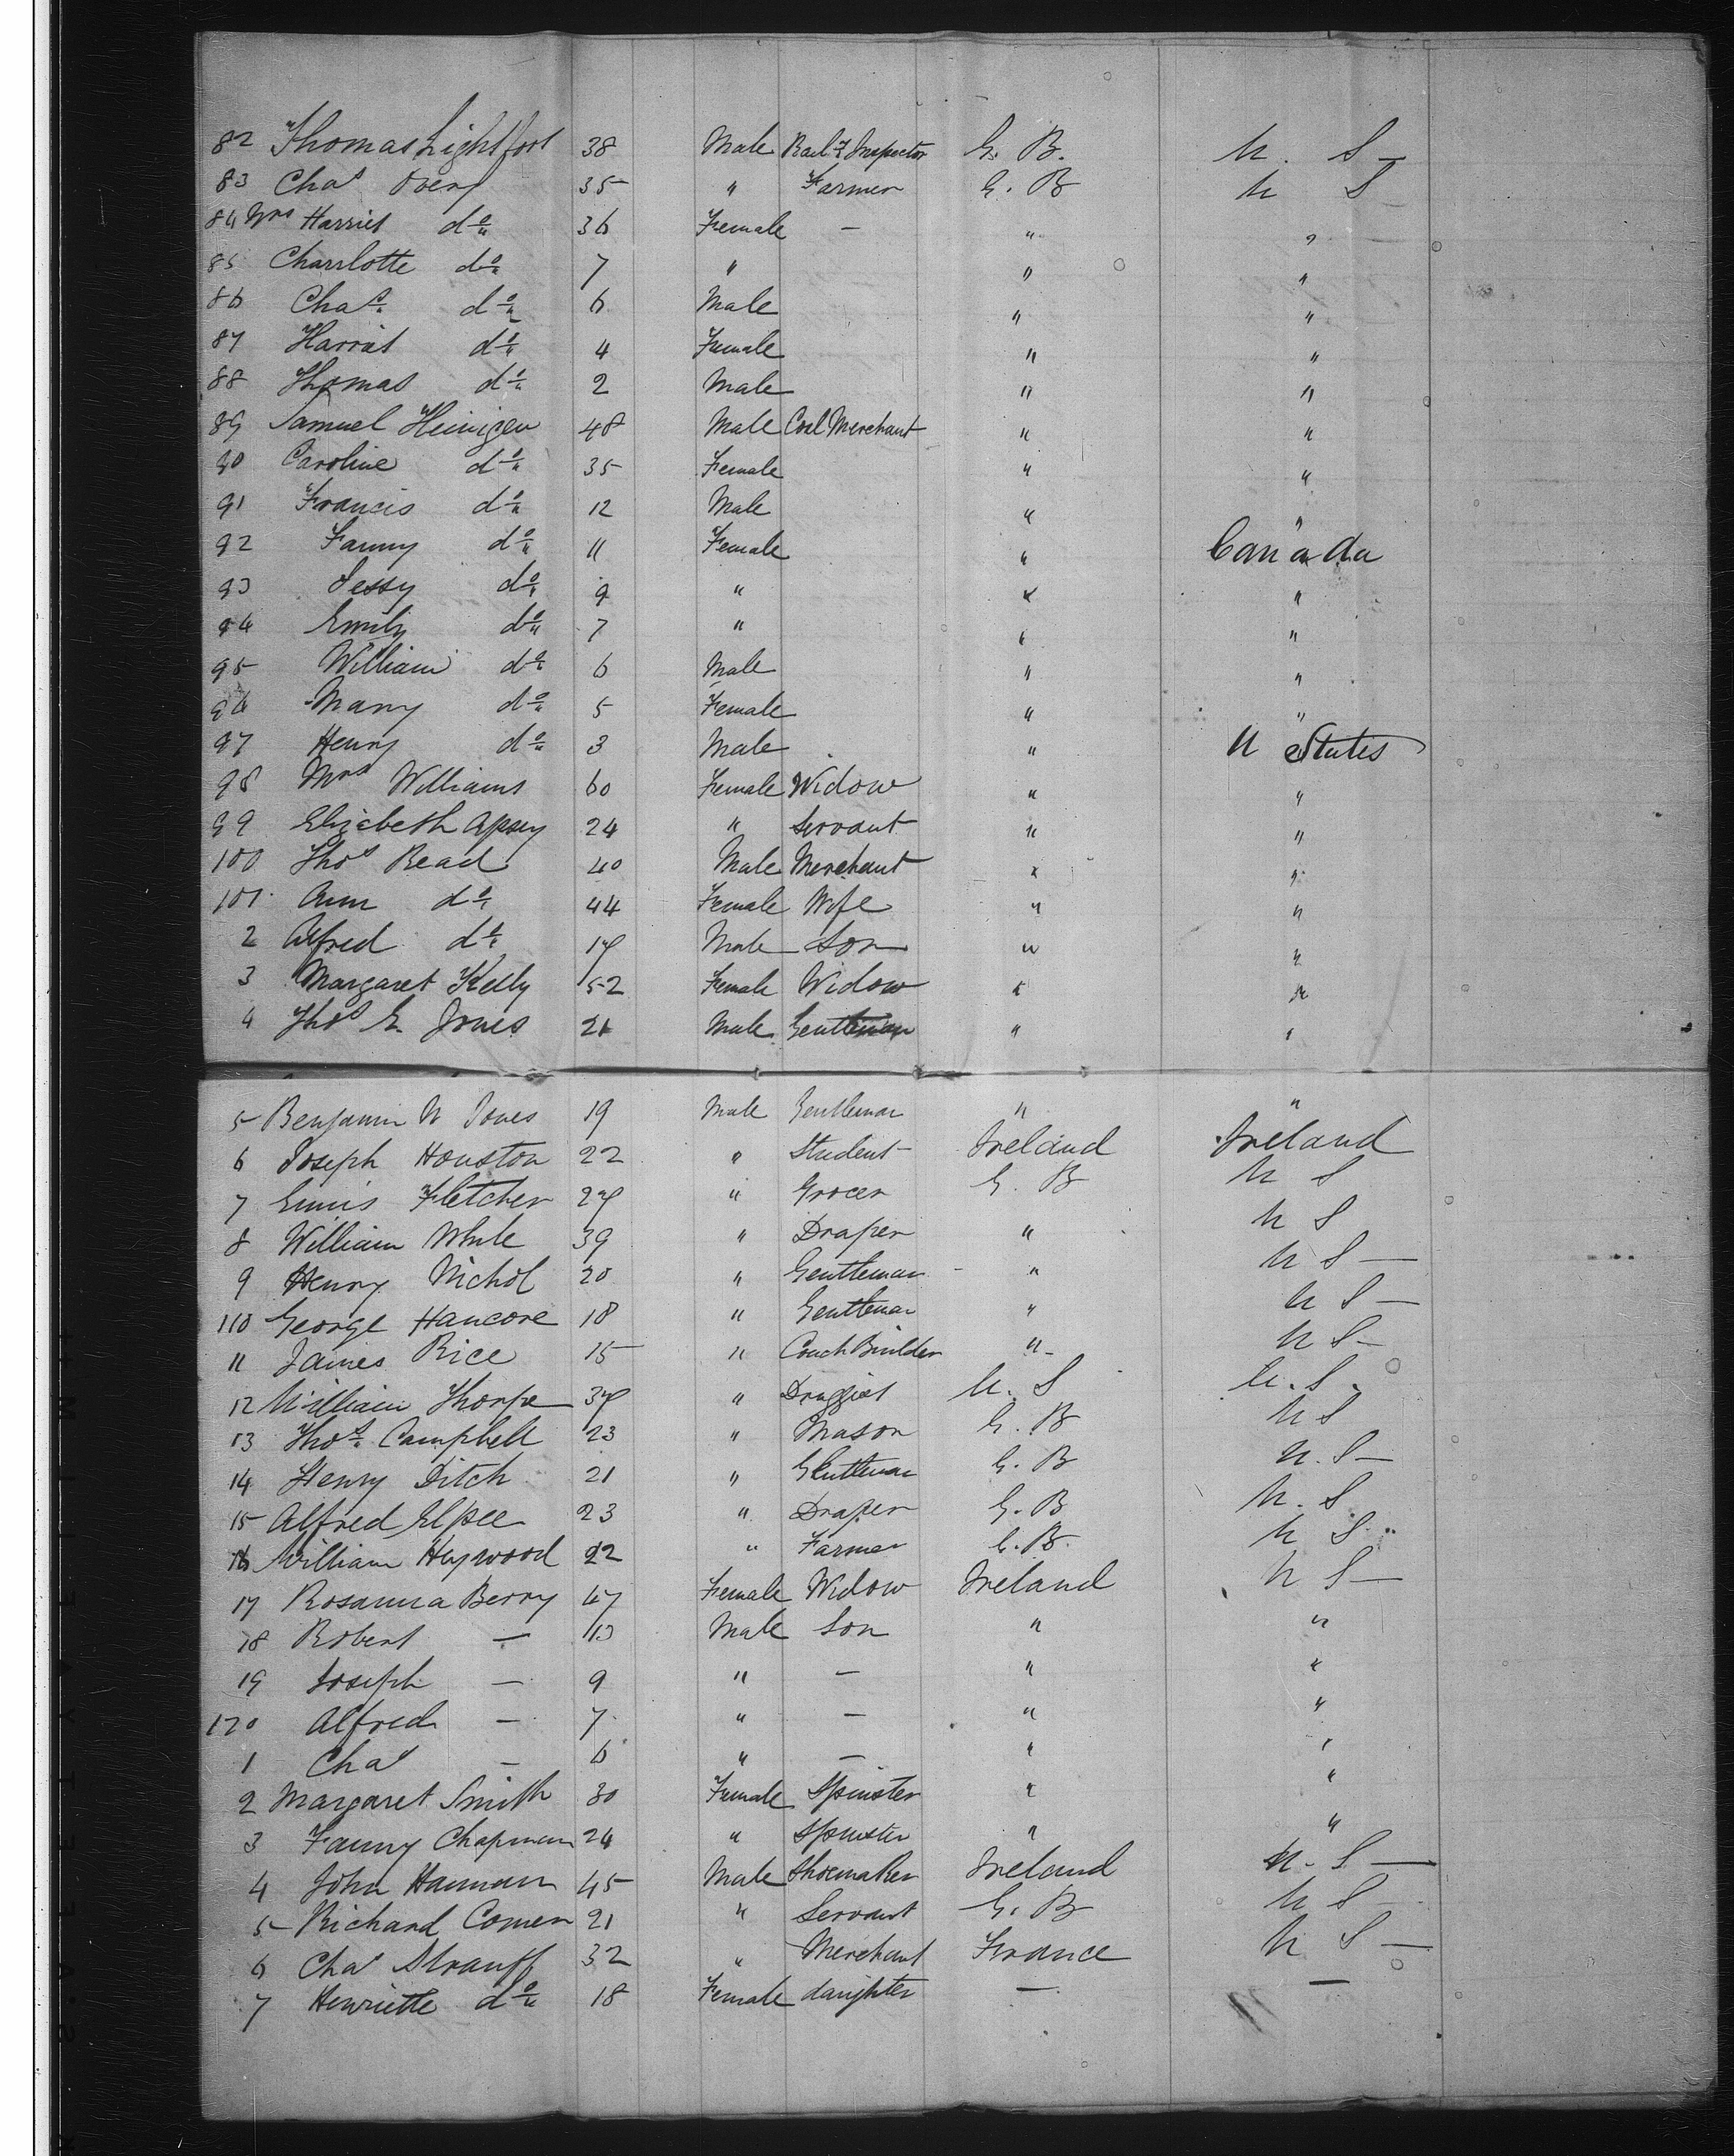 82 Thomas Lightfoot 38 Male Rail.y Inspector G. B. U. S —
83 Chas Overy 35 " Farmer G. B U S
84 Mrs Harriet do 36 Female — " "
85 Charrlotte do 7 " " "
86 Chas. do 6 Male " "
87 Harriet do 4 Female " "
88 Thomas do 2 Male " "
89 Samuel 48 Male Coal Merchant " "
90 Caroline do 35 Female " "
91 Francis do 12 Male " "
92 Fanny do 11 Female " Canada
93 Jessy do 9 " " "
94 Emily do 7 " " "
95 William do 6 Male " "
96 Mary do 5 Female " "
97 Henry do 3 Male " U States
98 Mrs Williams 60 Female Widow " "
99 Elizabeth Apsey 24 " Servant " "
100 Thos Read 40 Male Merchant " "
101 Ann do 44 Female Wife " "
2 Alfred do 17 Male Son " "
3 Margaret Kelly 52 Female Widow " "
4 Thos E. Jones 21 Male Gentleman " "
5 Benjamin W Jones 19 Male Gentleman " "
6 Joseph Houston 22 " Student Ireland Ireland
7 Ennis Fletcher 27 " Grocer G. B U S
8 William White 39 " Draper " U S
9 Henry Nichol 20 " Gentleman " U S —
110 George Hancore 18 " Gentleman " U S —
11 James Rice 15 " Coach Builder " U S —
12 William Thorpe 37 " Druggist U. S U. S.
13 Thos. Campbell 23 " Mason G. B U S
14 Henry Ditch 21 " Gentleman G. B U. S —
15 Alfred Elpee 23 " Draper G. B U. S
16 William Heywood 22 " Farmer G. B. U S
17 Rosanna Berry 47 Female Widow Ireland U S —
18 Robert — 13 Male Son " "
19 Joseph — 9 " — " "
120 Alfred — 7 " — " "
1 Chas — 6 " — " "
2 Margaret Smith 30 Female Spinster " "
3 Fanny Chapman 24 " Spinster " "
4 John Hannan 45 Male Shoemaker Ireland U. S —
5 Richard Comer 21 " Servant G. B U S
6 Chas Strauss 32 " Merchant France U S —
7 Henriette do 18 Female daughter — —